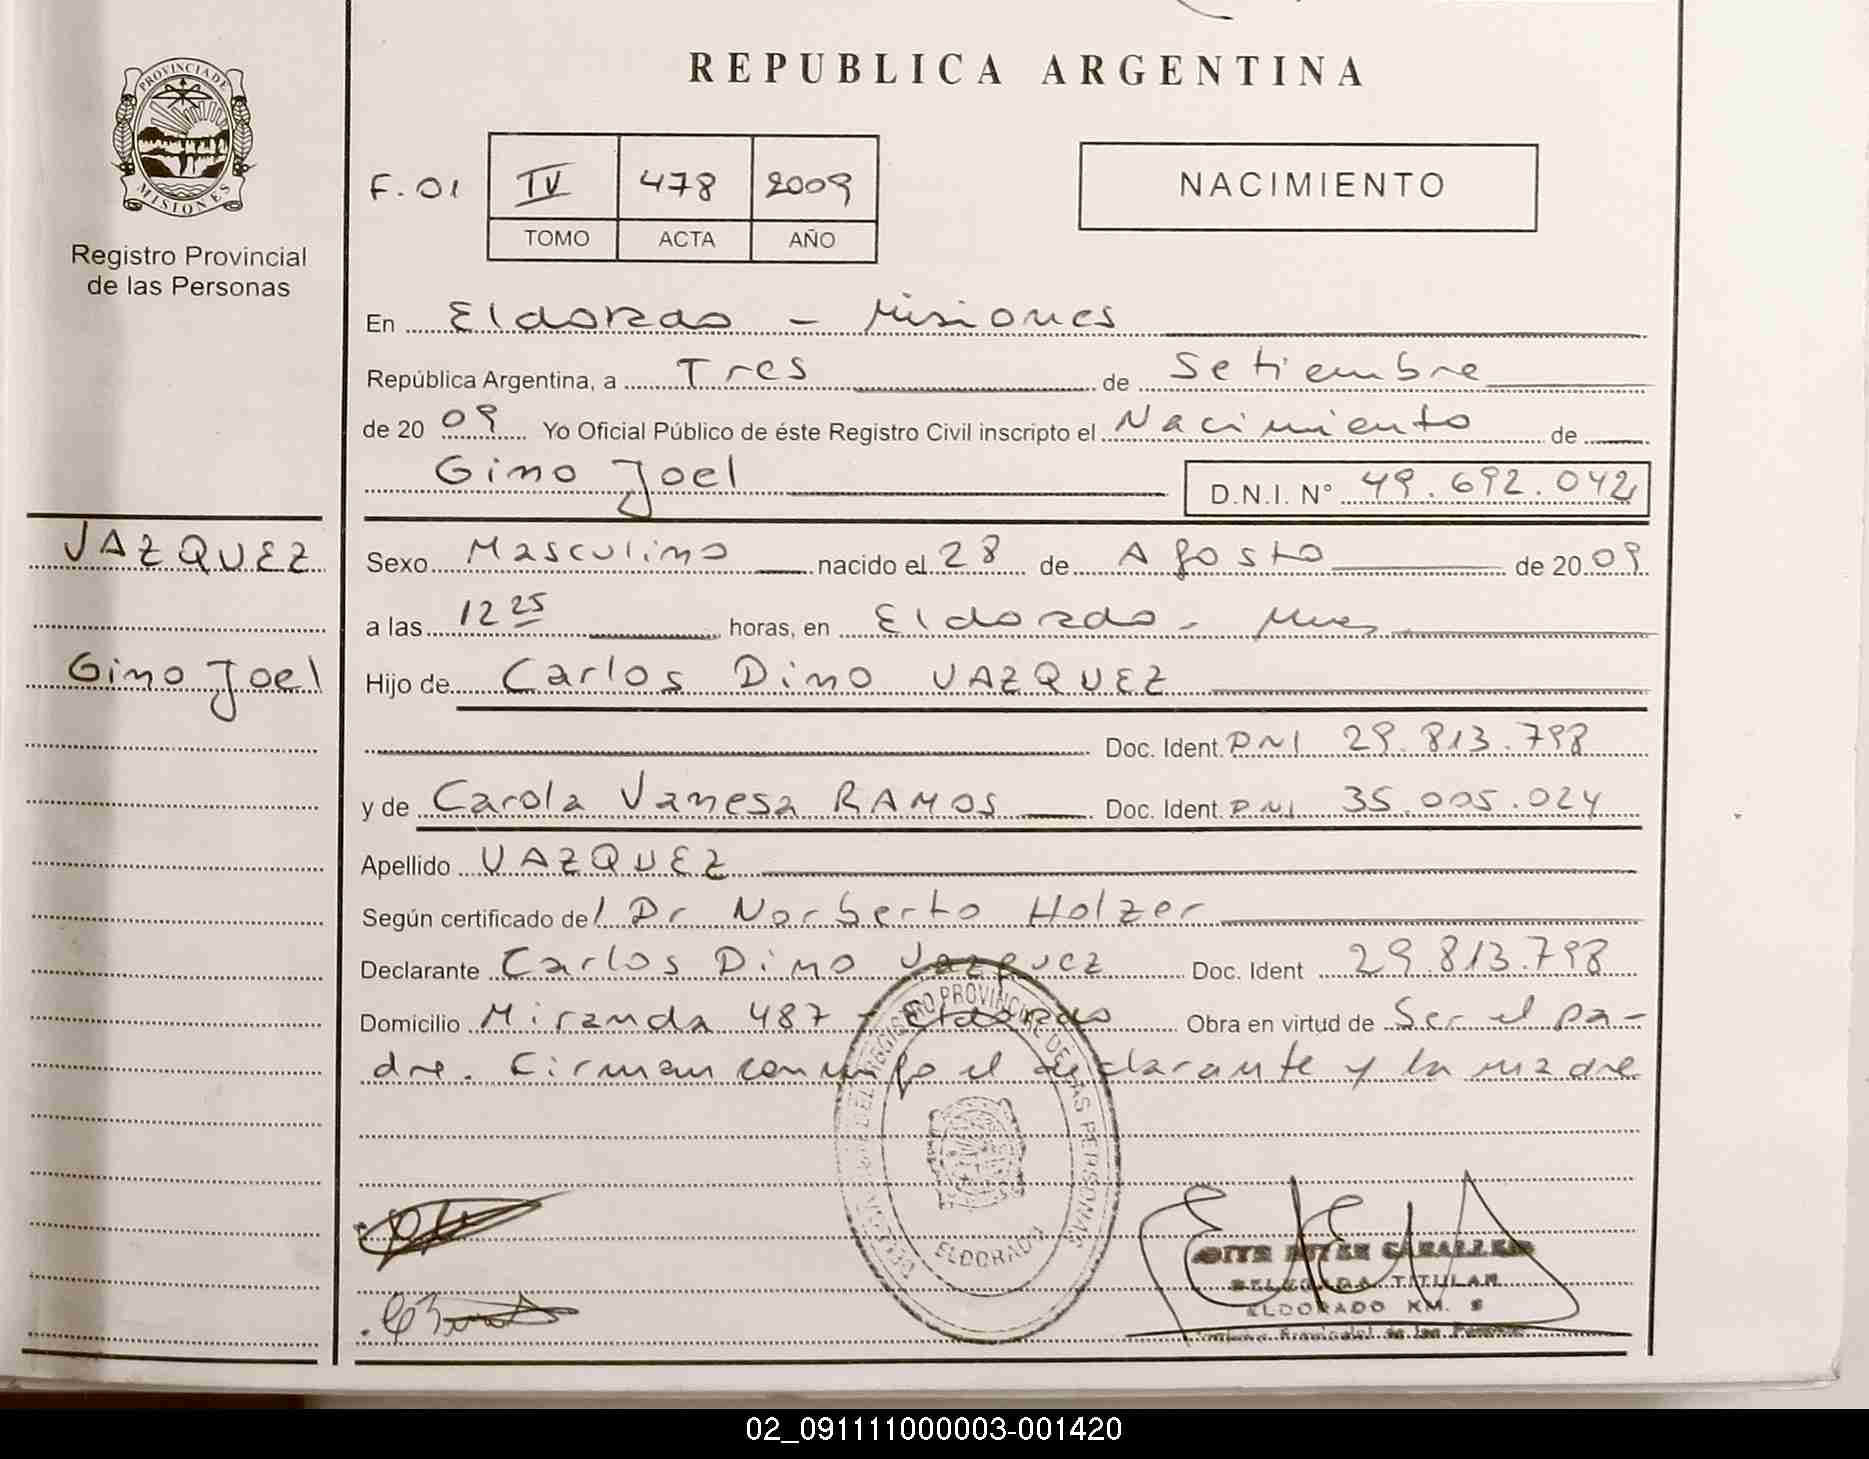 REPUBLICA ARGENTINA
PROVINCIA DE
MISIONES
Registro Provincial
de las Personas
F. 01
IV 478 2009
TOMO ACTA AÑO
NACIMIENTO
En Eldorado - Misiones
República Argentina, a Tres de Setiembre
de 20 09 Yo Oficial Público de éste Registro Civil inscripto el Nacimiento de
Gino Joel D.N.I. N° 49.692.042
VAZQUEZ
Gino Joel
Sexo Masculino nacido el 28 de Agosto de 20 09
a las 12 25 horas, en Eldorado - Mnes
Hijo de Carlos Dino VAZQUEZ
Doc. Ident. DNI 29.813.798
y de Carola Vanesa RAMOS Doc. Ident. DNI 35.005.024
Apellido VAZQUEZ
Según certificado del Dr Norberto Holzer
Declarante Carlos Dino Vazquez Doc. Ident 29.813.798
Domicilio Miranda 487 - Eldorado Obra en virtud de Ser el pa-
dre. Firman conmigo el declarante y la madre
REGISTRO PROVINCIAL DE LAS PERSONAS
ELDORADO
CABALLERO
DELEGADA TITULAR
ELDORADO KM. 9
Provincial de las Personas
02_091111000003-001420